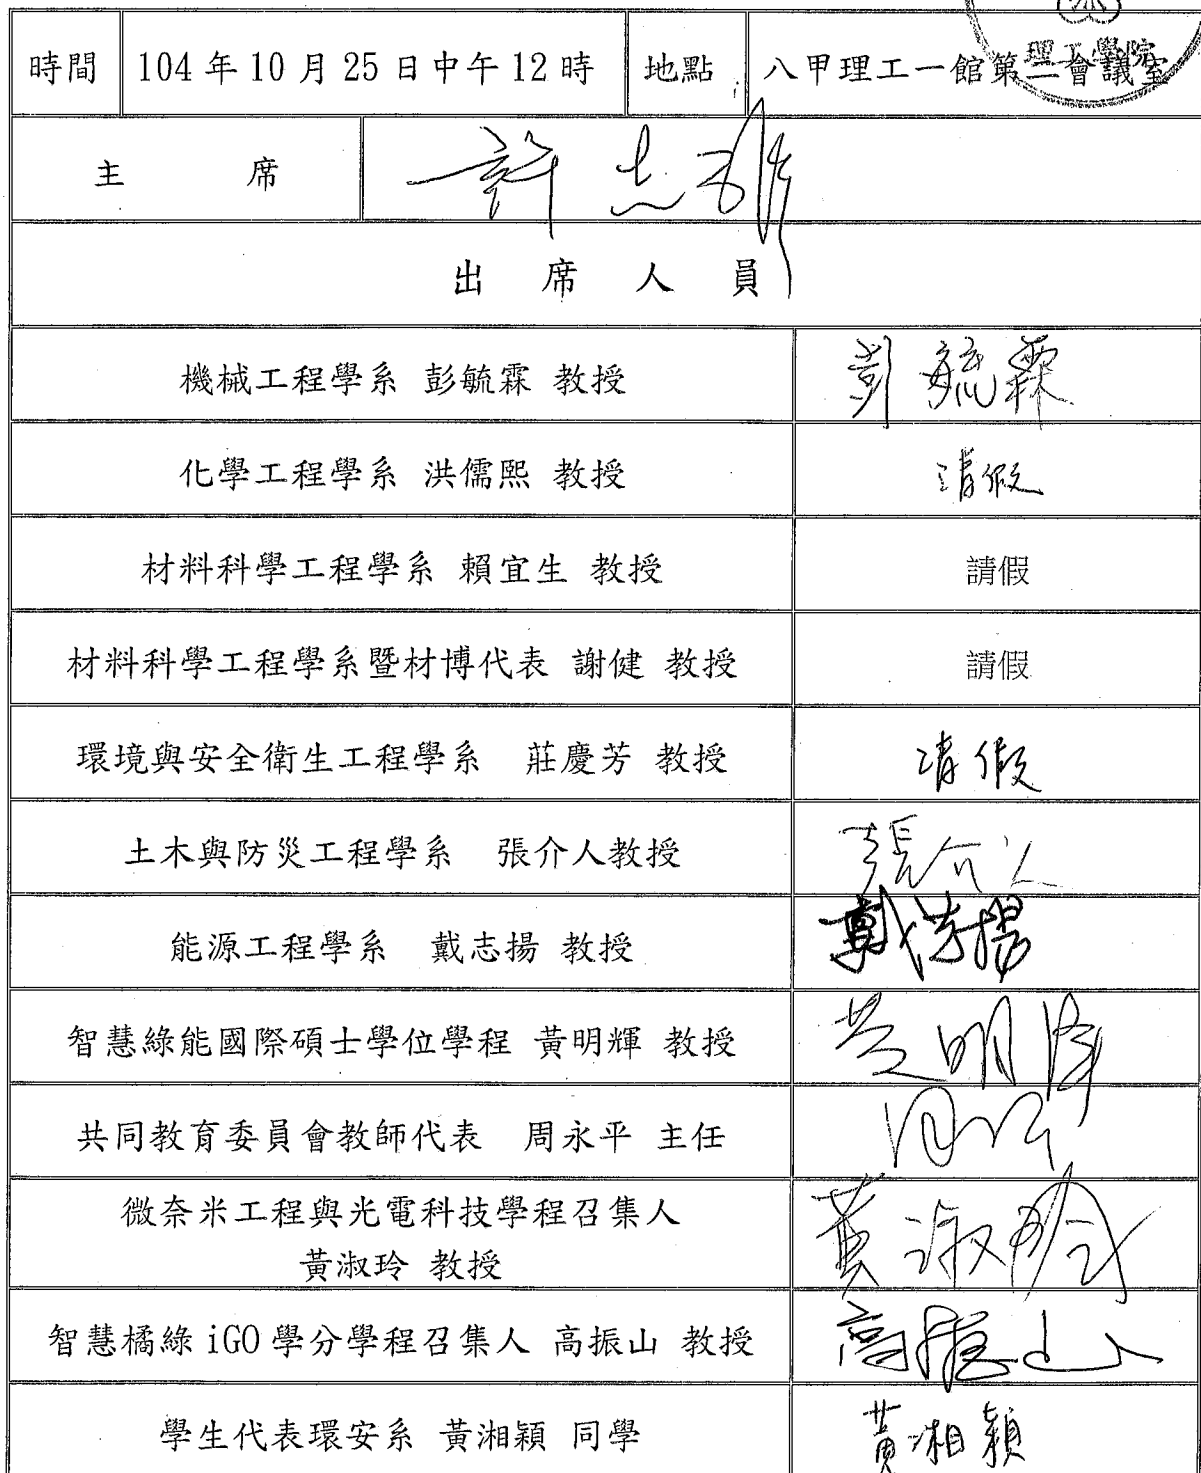 時間 104年10月25日中午12時 地點 八甲理工一館第二會議室
理工學院
主 席 許志雄
出 席 人 員
機械工程學系 彭毓霖 教授 彭毓霖
化學工程學系 洪儒熙 教授 請假
材料科學工程學系 賴宜生 教授 請假
材料科學工程學系暨材博代表 謝健 教授 請假
環境與安全衛生工程學系 莊慶芳 教授 請假
土木與防災工程學系 張介人教授 張介人
能源工程學系 戴志揚 教授 戴志揚
智慧綠能國際碩士學位學程 黃明輝 教授 黃明輝
共同教育委員會教師代表 周永平 主任
微奈米工程與光電科技學程召集人
黃淑玲 教授 黃淑玲
智慧橘綠 iGO 學分學程召集人 高振山 教授 高振山
學生代表環安系 黃湘穎 同學 黃湘穎